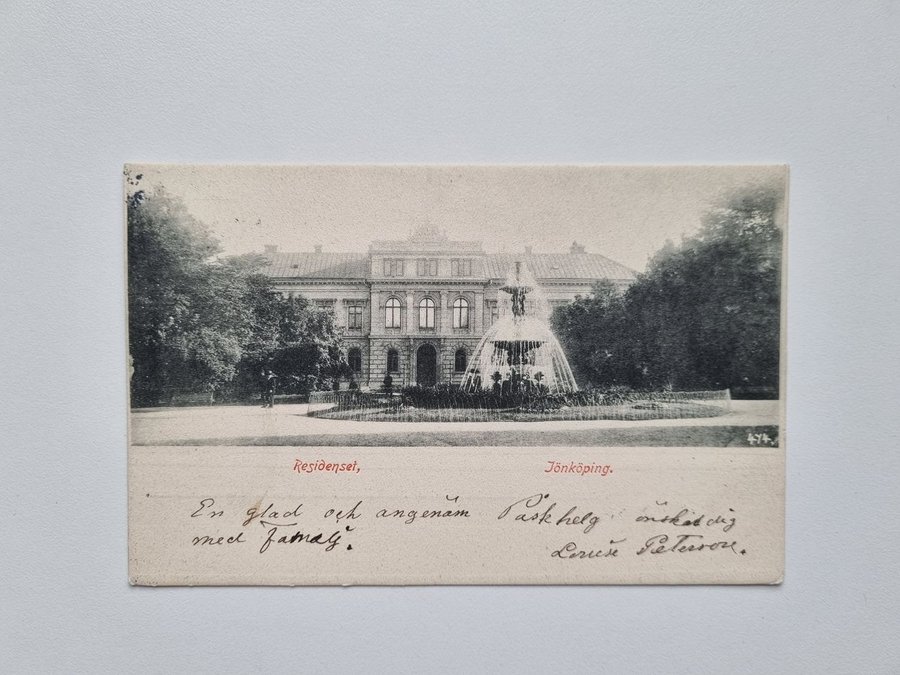 474.
Residenset, Jönköping.
En glad och angenäm Påskhelg önskas dig
med Familj.
Louise Peterson.